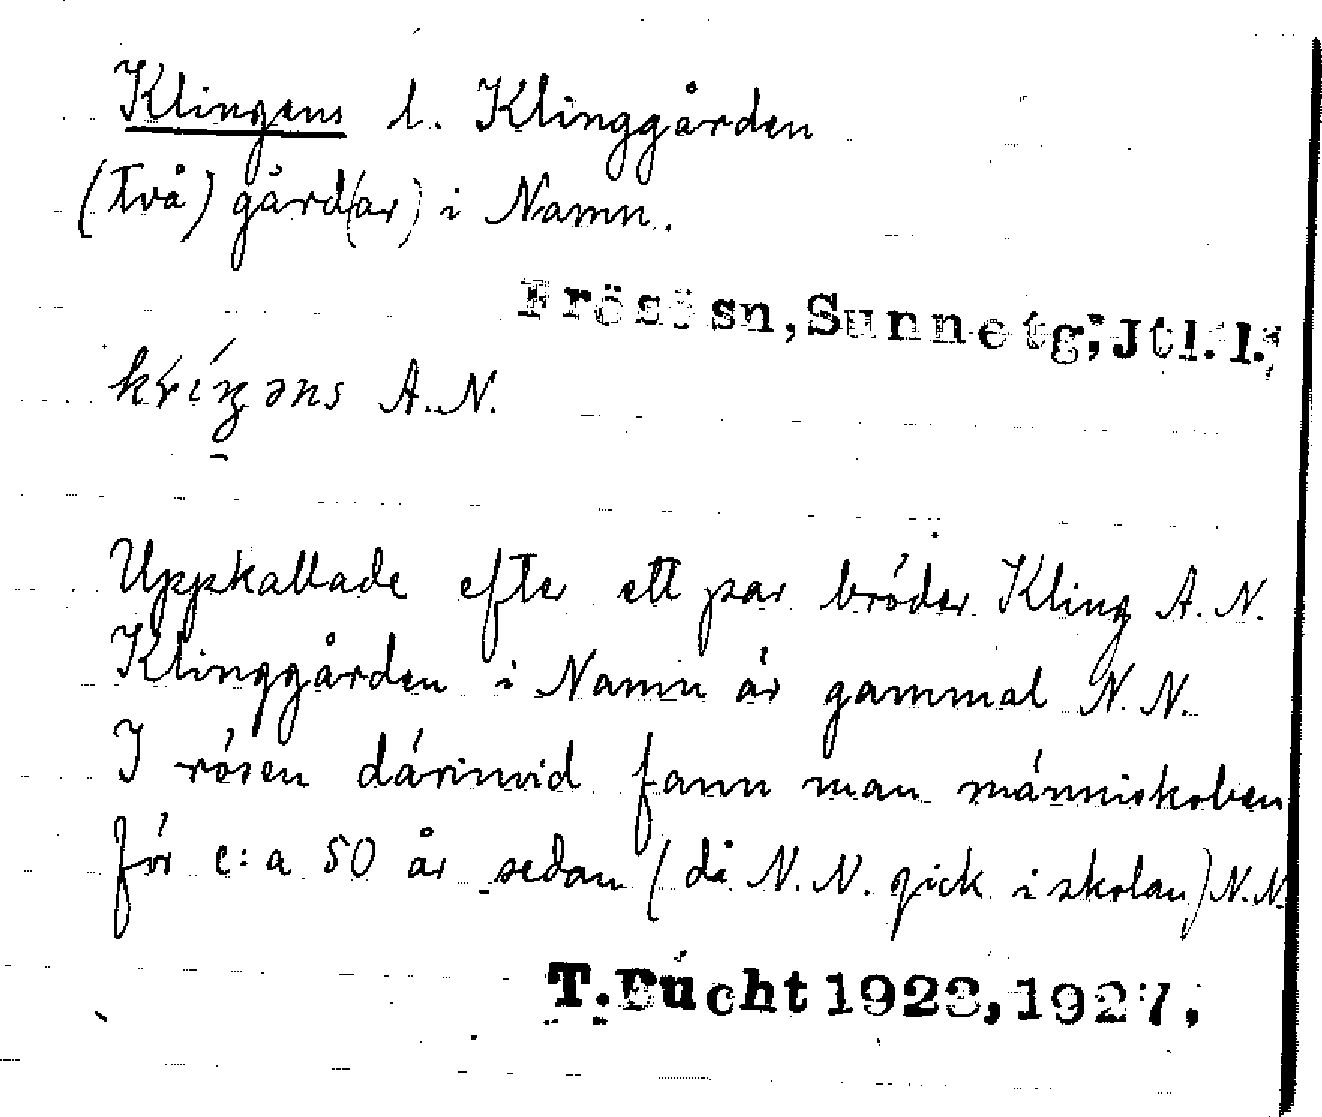 Klingens l. Klinggården
(två) gård(ar) i Namn.
Frösösn, Sunnetg; Jtl. l.
A. N.
Uppkallade efter ett par bröder Kling A. N.
Klinggården i Namn är gammal N. N.
I rösen därinvid fann man människoben
för c:a 50 år sedan (då N. N. gick i skolan) N. N.
T. Bucht 1923, 1927.